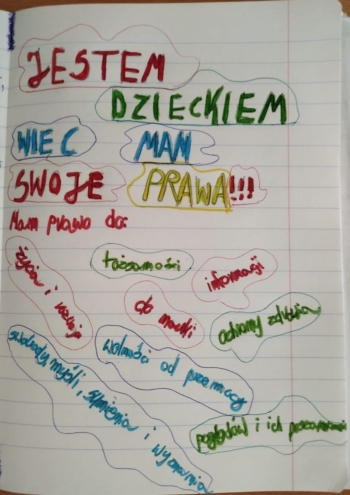 JESTEM
DZIECKIEM
WIEC MAM
SWOJE PRAWA!!!
Mam prawo do:
życia i rozwoju
tożsamości
informacji
do nauki
ochrony zdrowia
wolności od przemocy
swobody myśli, sumienia i wyznania
poglądów i ich